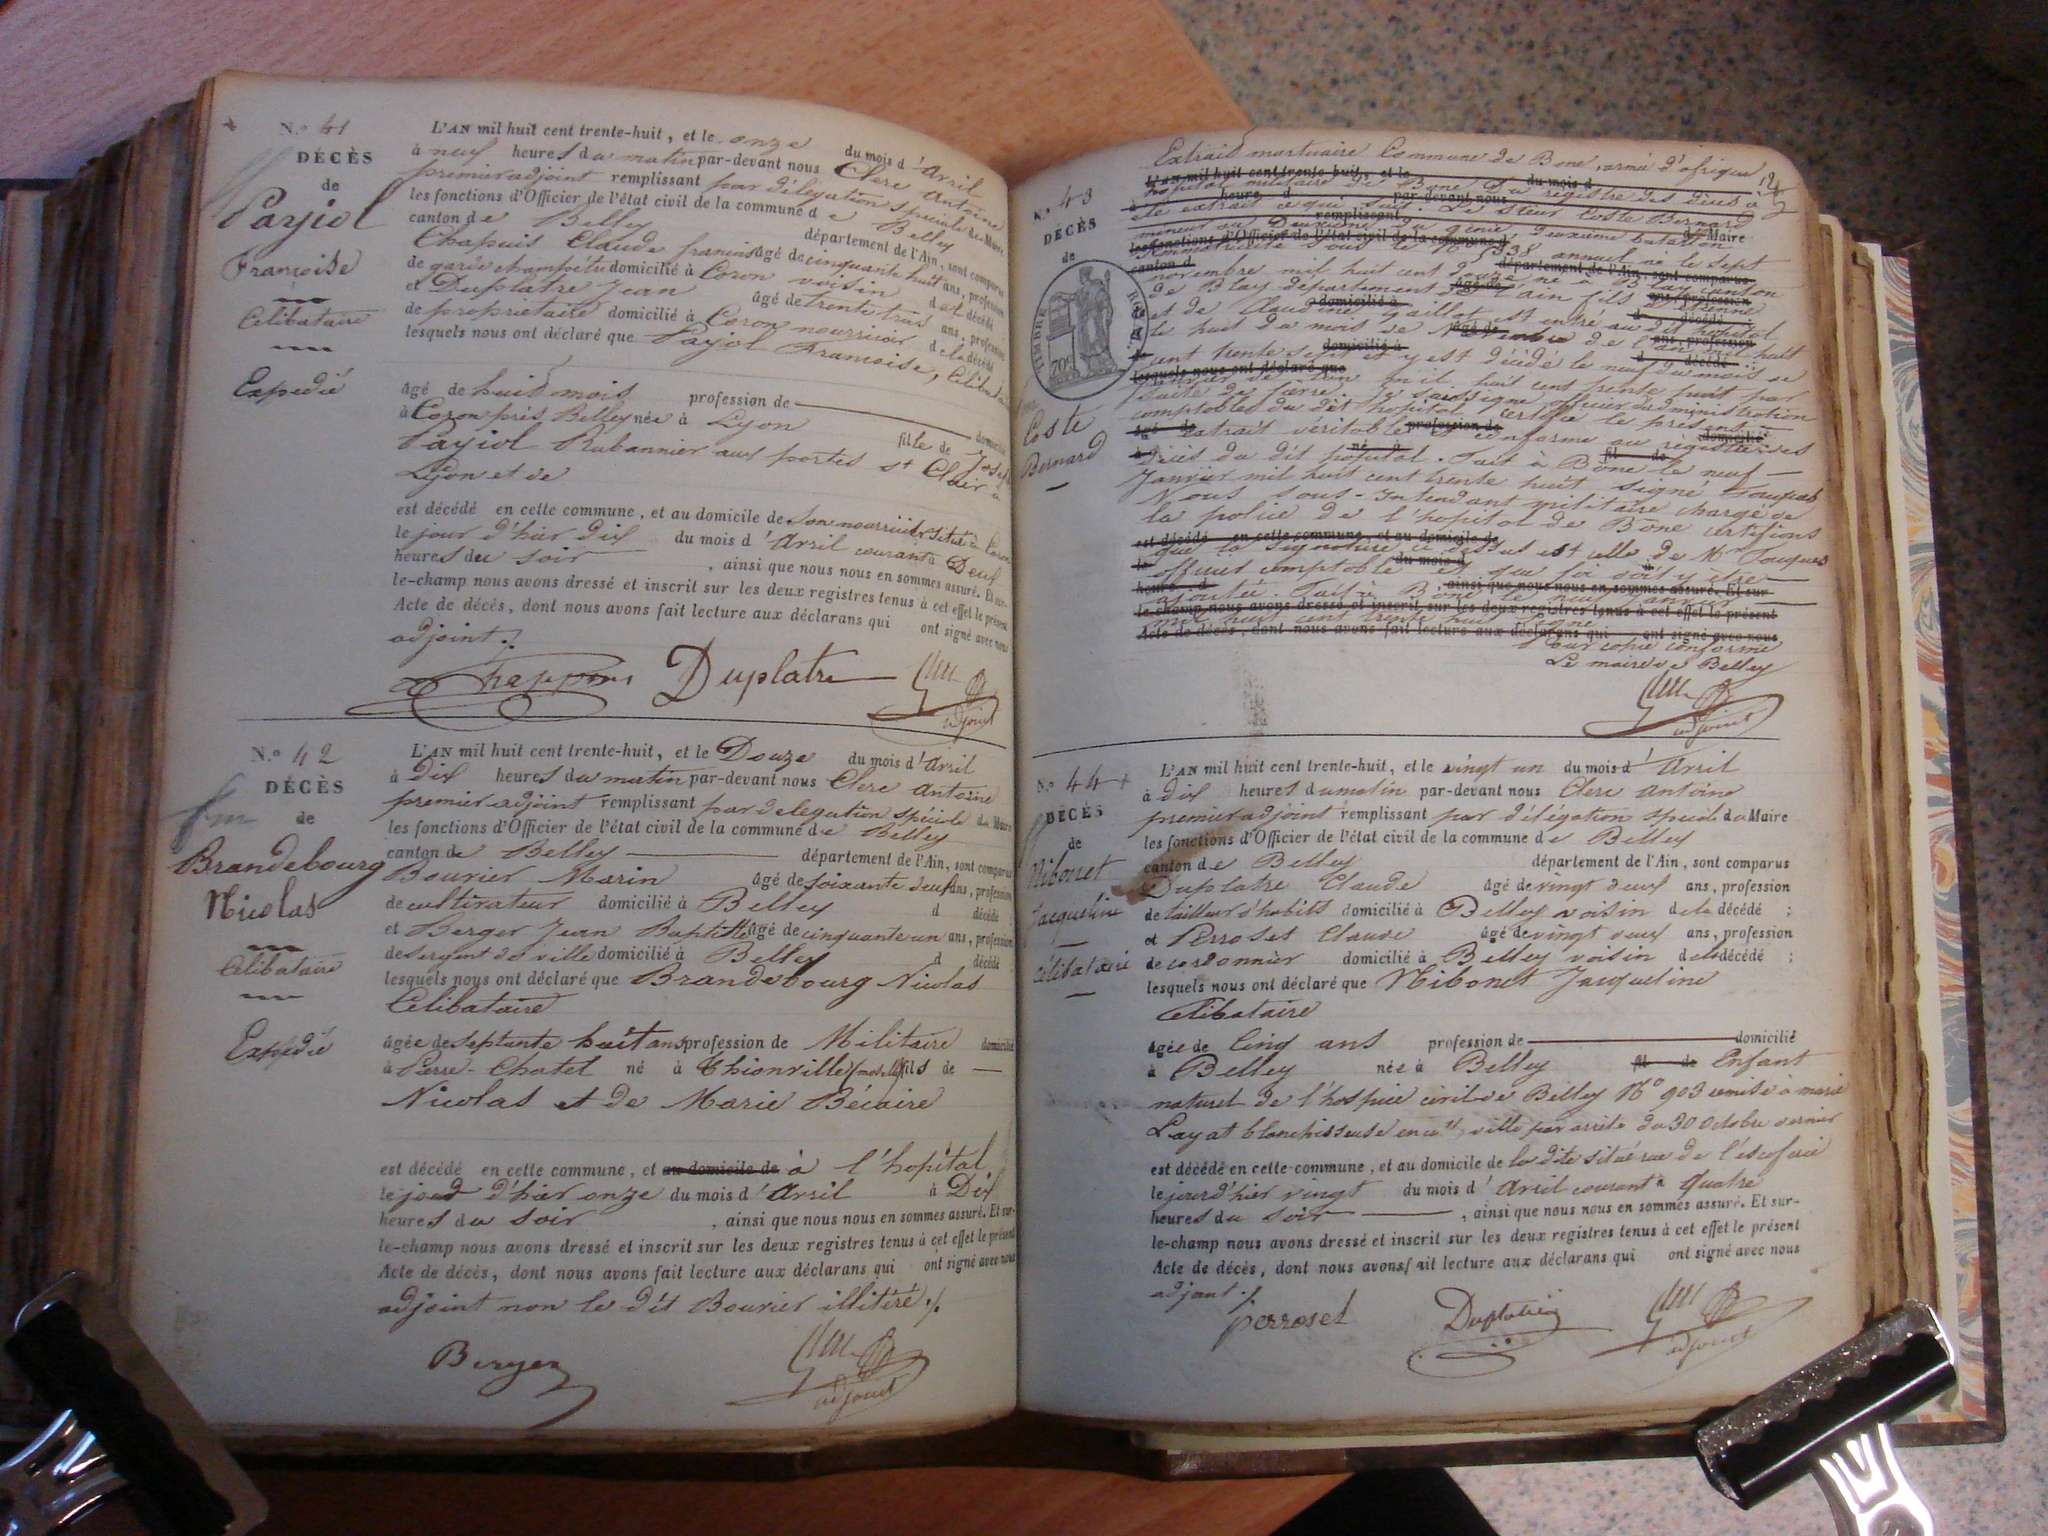 N.o 41
DÉCÈS
de
Payiol
Françoise
Célibataire
Expedié
L'AN mil huit cent trente-huit, et le onze du mois d'Avril
à neuf heures du matin par-devant nous Clerc Antoine
premier adjoint remplissant par délégation spéciale du Maire
les fonctions d'Officier de l'état civil de la commune de Belley
canton de Belley département de l'Ain, sont comparus
Chapuis Claude âgé de cinquante huit ans, profession
de garde champêtre domicilié à Coron voisin d décédé
et Duplatre Jean âgé de trente trois ans, profession
de propriétaire domicilié à Coron nourricier de la décédé
lesquels nous ont déclaré que Payol Françoise, Céliba
âgé de huit mois profession de domicilié
à Coron près Belley née à Lyon fille de Joseph
Payiol Rubannier aux portes st Clair à
Lyon et de
est décédé en cette commune, et au domicile de son nourricier situé à Coron
le jour d'hier dix du mois d'Avril courant à Deux
heures du soir , ainsi que nous nous en sommes assuré. Et sur-
le-champ nous avons dressé et inscrit sur les deux registres tenus à cet effet le présent
Acte de décès, dont nous avons fait lecture aux déclarans qui ont signé avec nous
adjoint ./.
Duplatre
adjoint
N.o 42
DÉCÈS
de
Brandebourg
Nicolas
Célibataire
Expédié
L'AN mil huit cent trente-huit, et le Douze du mois d'Avril
à Dix heures du matin par-devant nous Clerc Antoine
premier adjoint remplissant par delegation spéciale du Maire
les fonctions d'Officier de l'état civil de la commune de Belley
canton de Belley département de l'Ain, sont comparus
Bouvier Marin âgé de soixante deux ans, profession
de cultivateur domicilié à Belley d décédé ;
et Berger Jean Baptiste âgé de cinquante un ans, profession
de sergent de ville domicilié à Belley d décédé ;
lesquels nous ont déclaré que Brandebourg Nicolas
Célibataire
âgée de septante huit ans profession de Militaire domicilié
à Pierre-Chatel né à Thionville (moselle) fils de
Nicolas et de Marie Bécaire
est décédé en cette commune, et au domicile de à l'hopital
le jour d'hier onze du mois d'Avril à Dix
heures du soir , ainsi que nous nous en sommes assuré. Et sur-
le-champ nous avons dressé et inscrit sur les deux registres tenus à cet effet le présent
Acte de décès, dont nous avons fait lecture aux déclarans qui ont signé avec nous
adjoint non le dit Bouvier illitéré ./.
Berger
adjoint
N.o 43
DÉCÈS
de
TIMBRE ROYAL
70c
Coste
Bernard
Extrait mortuaire Commune de Bone armée d'afrique
hopital militaire de Bone Du registre des décès a
été extrait ce qui suit Le sieur Coste Bernard
mineur au du génie deuxième bataillon
sept
novembre mil huit cent douze né à canton
de département de l'ain fils Etienne
et de Claudine est entré au dit hopital
le huit du mois de de l'an mil huit
cent trente sept et y est décédé le neuf du mois de
Janvier de l'an mil huit cent trente huit par
suite de fièvre. Je soussigné officier d'administration
comptable du dit hopital certifie le présent
extrait véritable et conforme au registre des
décès du dit hopital. Fait à Bone le neuf
Janvier mil huit cent trente huit signé Fouques
Nous sous-Intendant militaire chargé de
la police de l'hopital de Bone certifions
que la signature ci dessus est celle de Mr Fouques
officier comptable et que foi doit y être
ajoutée. Fait à Bone le neuf
mil huit cent trente huit signé
Pour copie conforme
Le maire de Belley
adjoint
N.o 44
DÉCÈS
de
Nibonet
Jacqueline
célibataire
L'AN mil huit cent trente-huit, et le vingt un du mois d'Avril
à dix heures du matin par-devant nous Clerc Antoine
premier adjoint remplissant par délégation spéciale du Maire
les fonctions d'Officier de l'état civil de la commune de Belley
canton de Belley département de l'Ain, sont comparus
Duplatre Claude âgé de vingt deux ans, profession
de tailleur d'habits domicilié à Belley voisin de la décédé ;
et Perroset Claude âgé de vingt deux ans, profession
de cordonnier domicilié à Belley voisin de la décédé ;
lesquels nous ont déclaré que Nibonet Jacqueline
Célibataire
agée de Cinq ans profession de domicilié
à Belley née à Belley fil de Enfant
naturel de l'hospice civil de Belley No 903 remise à marie
Layat blanchisseuse en cette ville par arrêté du 30 Octobre dernier
est décédé en cette commune, et au domicile de la dite située rue de l'escoferie
le jour d'hier vingt du mois d'Avril courant à Quatre
heures du soir , ainsi que nous nous en sommes assuré. Et sur-
le-champ nous avons dressé et inscrit sur les deux registres tenus à cet effet le présent
Acte de décès, dont nous avons fait lecture aux déclarans qui ont signé avec nous
adjoint ./.
perroset Duplatre
adjoint